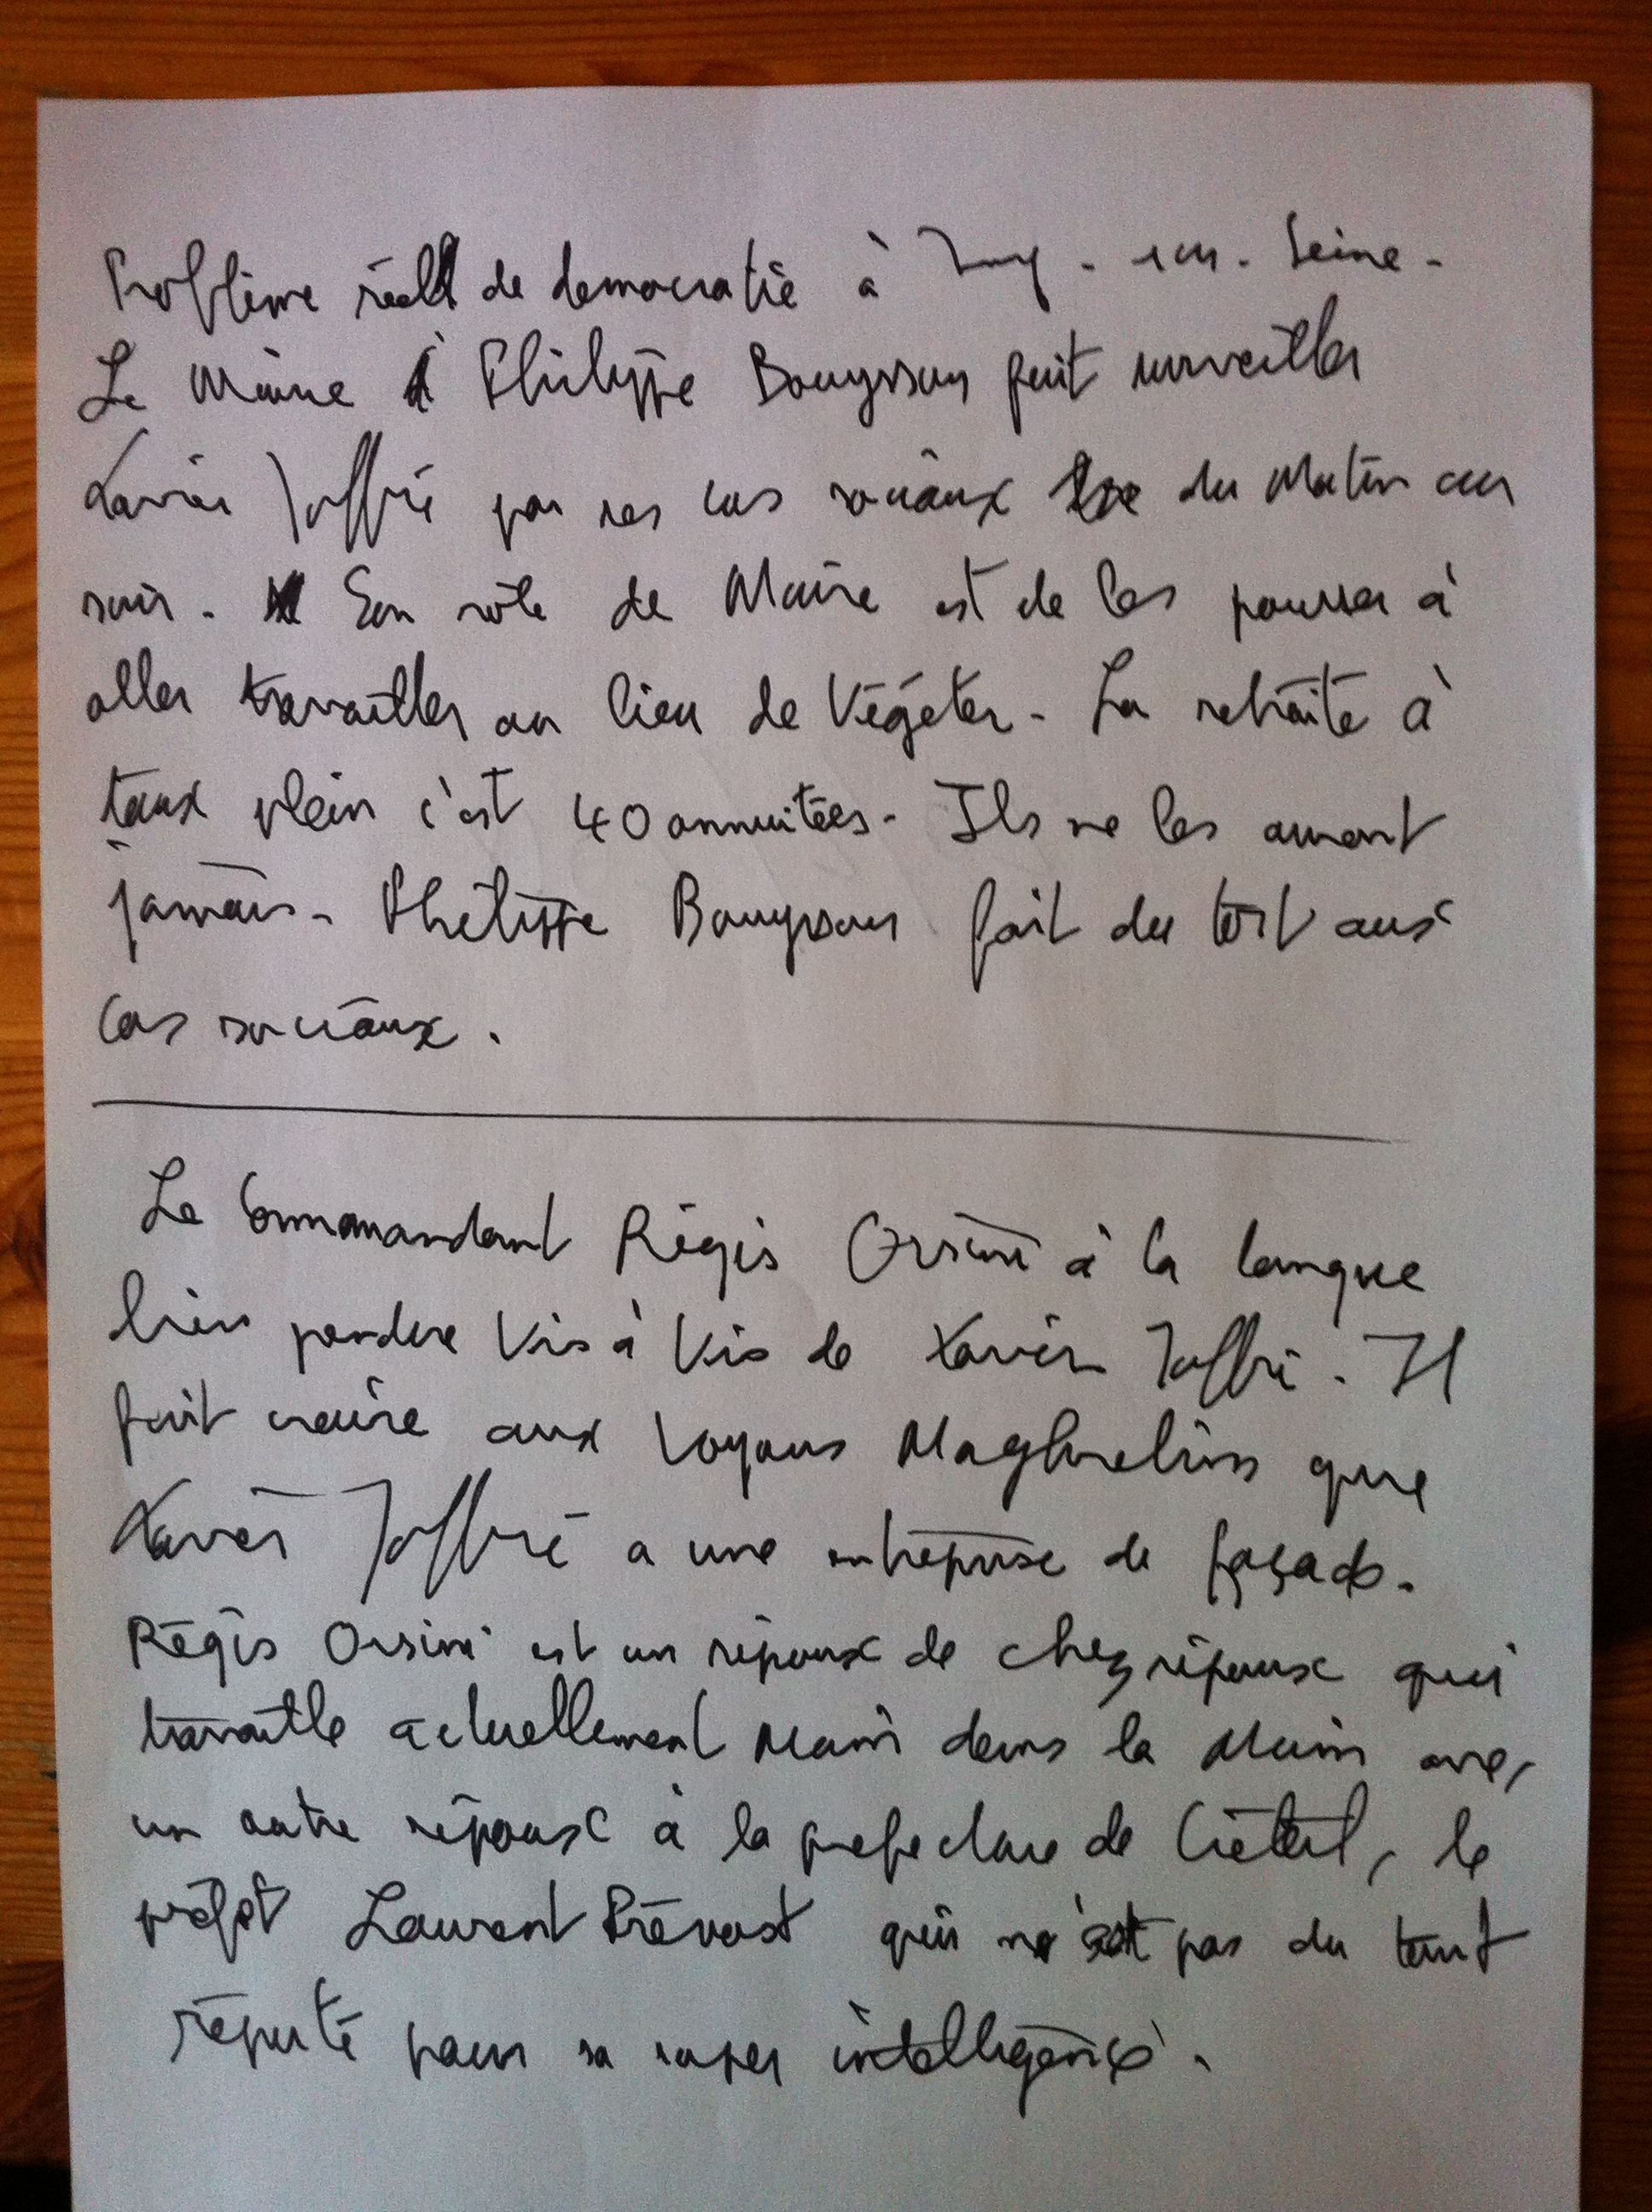 Problème réel de democratie à Ivry-sur-Seine.
Le Maire Philippe Bouyssou fait surveiller
Xavier Joffré par ses cas sociaux du Matin au
soir. Son rôle de Maire est de les pousser à
aller travailler au lieu de Végéter. La retraite à
taux plein c'est 40 annuitées. Ils ne les auront
jamais. Philippe Bouyssou fait du tort aux
cas sociaux.
Le Commandant Régis Orsini à la langue
bien pendue Vis à Vis de Xavier Joffré. Il
fait croire aux Voyous Maghrebins que
Xavier Joffré a une entreprise de façade.
Régis Orsini est un ripoux de chez ripoux qui
travaille actuellement Main dans la Main avec
un autre ripoux à la prefecture de Créteil, le
préfet Laurent Prévost qui n'est pas du tout
réputé pour sa super intelligence.